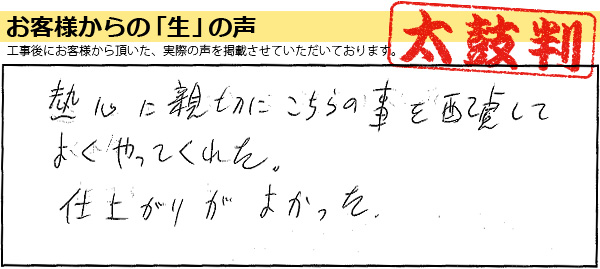 お客様からの「生」の声
太鼓判
工事後にお客様から頂いた、実際の声を掲載させていただいております。
熱心に親切にこちらの事を配慮して
よくやってくれた。
仕上がりがよかった.